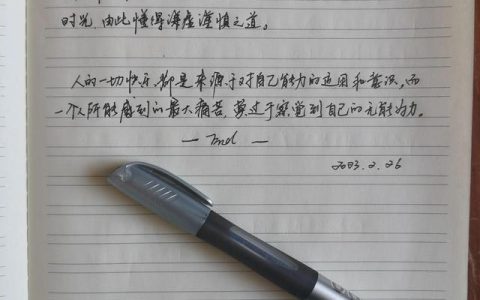 时光,由此懂得谦虚谨慎之道。
人的一切快乐,都是来源于对自己能力的运用和意识,而
一个人所能感到的最大痛苦,莫过于察觉到自己的无能为力。
— End —
2023.2.26